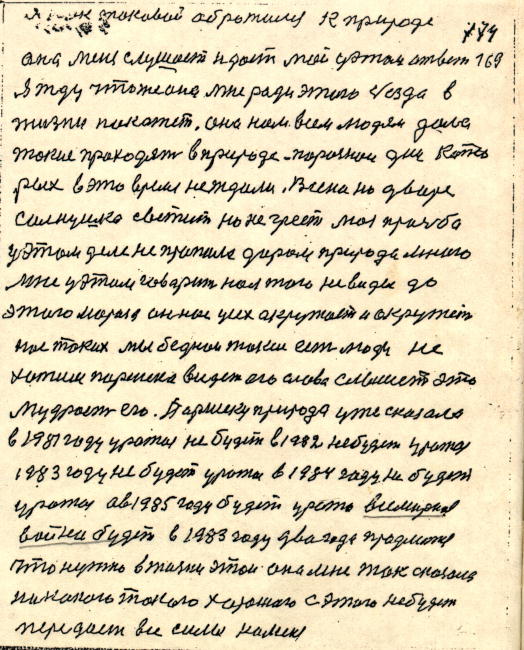 Я как таковой абротился к природе
174
ана меня слушает и дает мой уэтом ответ 169
Я жду что же она мне ради этого сезда в
жизни пакажет. она нам всем людям дала
такие праходят в природе
рых в это время не ждали. Весна на дваре
солнушка светит но не греет моя прозба
уэтом деле не прапала даром природа много
мне уэтом гаварит нам того не видеть до
этого мороза он нас усех акружает и акружит
нас таких мы бедная такии есть люди не
хотим паршека видеть его слова слышет это
мудрость его. Паршеку природа уже сказала
в 1981 году урожая не будет в 1982 небудет урожая
1983 году не будет урожая в 1984 году не будет
урожая а в 1985 году будет урожа всемирная
война будет в 1983 году два года
что нужно в жизни этой она мне так сказала
никакого такого харошого с этого небудет
передает все силы